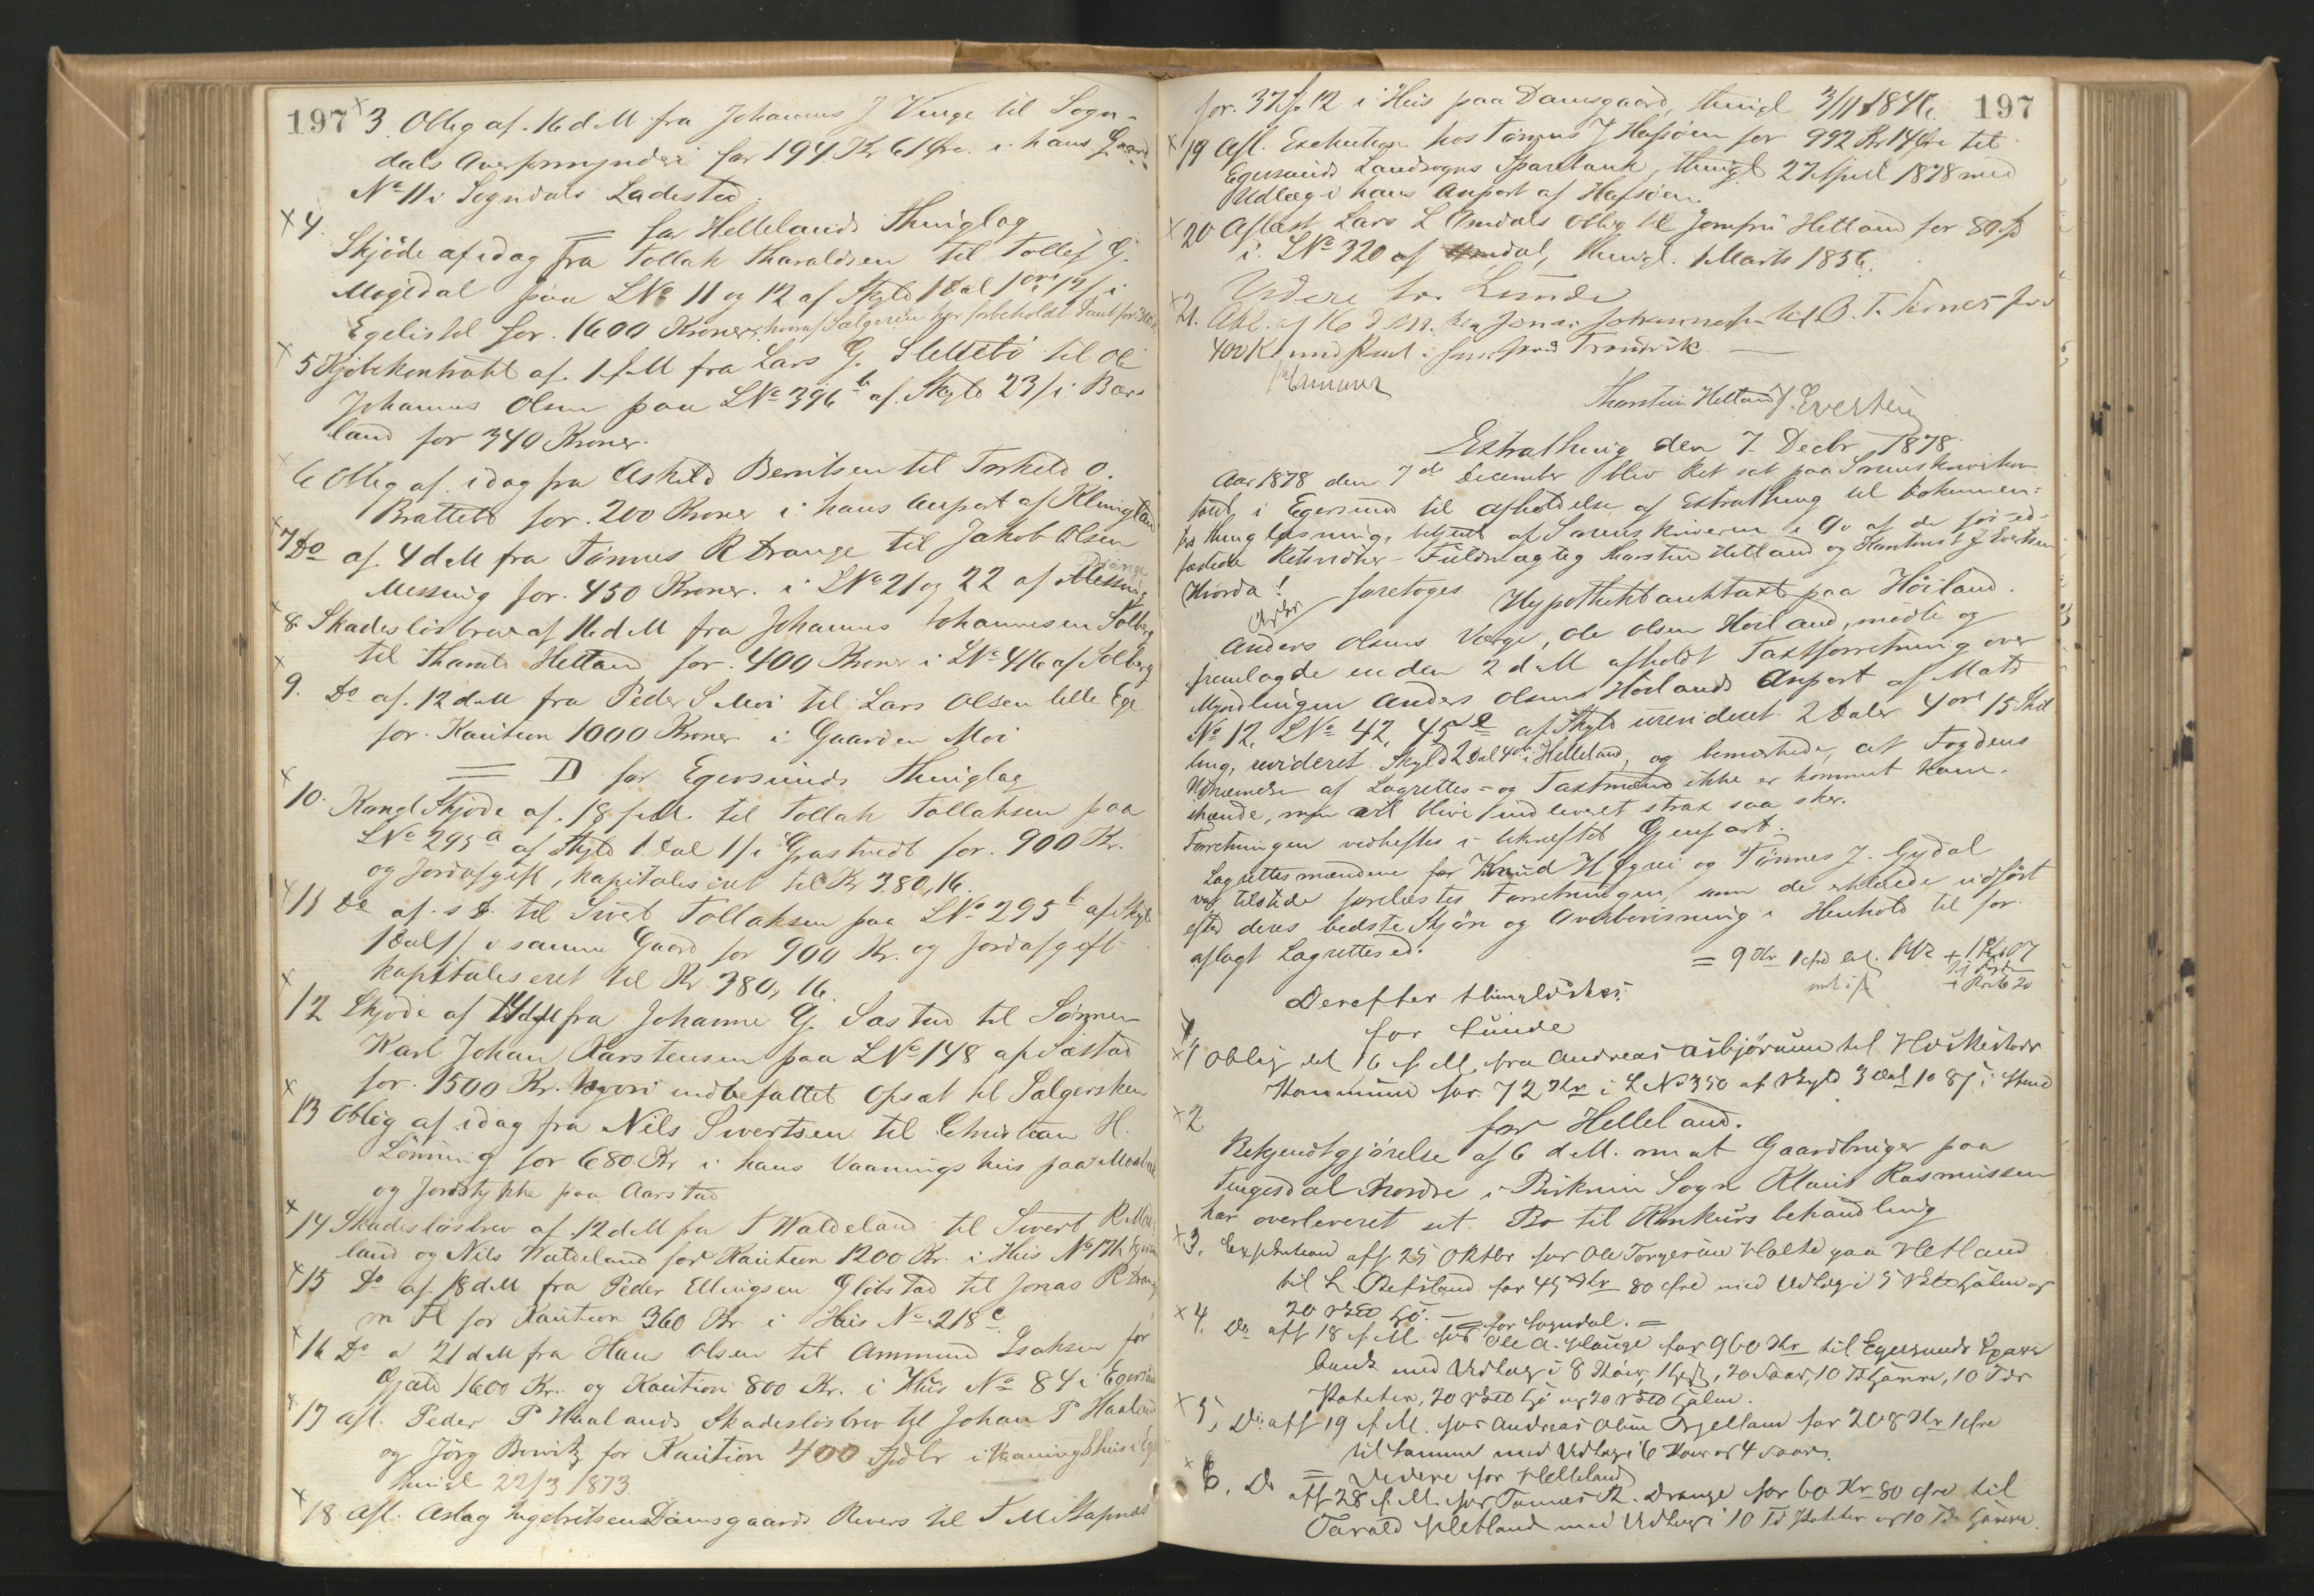 197
3 Oblig af. 16 d M fra Johannes J Vinge til Sogn-
dals Overformynderi for 194 Kr 61 Øre. i hans Gaard
No 11 i Sogndals Ladested.
4. = for Hellelands Thinglag
Skjöde af idag fra Tollak Tharaldsen til Tollef G.
Mogedal paa LNo 11 og 12 af Skyld 1 Dal 1 ort 12 s i
Egelistøl for. 1600 Kroner, hvoraf Sælgeren har forbeholdt Pant for
5 Kjöbekontrakt af. 1 f. M fra Lars G. Slettebö til Ole
Johannes Olsen paa LNo 396 b af. Skyld 23 s i Bars
land for 340 Kroner.
6 Oblig af. idag fra Askild Berntsen til Torkild O.
Brattebö for. 200 Kroner i hans Anpart af Klungland
7 Do af. 4 d M fra Tönnes R Drange til Jakob Olsen
Messing for. 450 Kroner. i LNo 21 og 22 af Messing Drange
8. Skadeslösbrev af 16 d M fra Johannes Johannesen Solberg
til Tharald Hetland for. 400 Kroner i LNo 416 af Solberg
9. Do af. 12 d M fra Peder S Moi til Lars Olsen lille Ege
for. Kaution 1000 Kroner i Gaarden Moi
= D for Egersunds Thinglag
10. Kongl Skjöde af. 18 f. M. til Tollak Tollaksen paa
LNo 295 a af Skyld 1 Dal 1 s i Grastvedt for. 900 Kr.
og Jordafgift, kapitaliseret til Kr 380,16.
11 Do af. s D. til Sivert Tollaksen paa LNo 295 b af Skyld
1 Dal 1 s i samme Gaard for 900 Kr. og Jordafgift
kapitaliseret til Kr 380,16.
12 Skjöde af 14 d M fra Johanne G. Sæstad til Sönnen
Karl Johan Karstensen paa LNo 148 af Sæstad
for. 1500 Kr. hvori indbefattet Opsæt til Sælgersken
13 Oblig af idag fra Nils Sivertsen til Christian H.
Lönning for 680 Kr i hans Vaaningshus paa
og Jordstykke paa Aarstad
14 Skadeslösbrev af. 12 d M fra T Waldeland til Sivert R
land og Nils Waldeland for Kaution 1200 Kr. i Hus No
15 Do af. 18 d M fra Peder Ellingsen Glöbstad til Jonas R Drange
m fl for Kaution 360 Kr. i Hus No 218 c
16 Do a 21 d M fra Hans Olsen til Ammund Isaksen for
Gjæld 1600 Kr. og Kaution 800 Kr. i Hus No 84 i Egersund
17 Afl. Peder P Haalands Skadeslösbrev til Johan P Haaland
og Jörg Bowitz for Kaution 400 Spdlr i Vaaningshus i
thingl 22/3 1873.
18 Afl. Aslag Ingebretsens Damsgaards Revers til T M Stapnæs
197
for. 37 s. 12 i Hus paa Damsgaard, thingl 3/11
19 Afl. Exekution hos Tönnes J Hafsöen for 992 Kr 14 Öre til
Egersunds Landsogns Sparebank, thingl 27 April 1878 med
Udlæg i hans Anpart af Hafsöen.
20 Aflæst Lars L Omdals Oblig til Jomfru Hetland for 80 Sp
i LNo 320 af Omdal, thingl. 1 Marts 1856.
Videre for Lunde
21. Obl. af 16 d M. fra Jonas Johannesen til B. T. Ternes for
400 Kr med Pant i
Thorstein Hetland J. Evertsen
Extrathing den 7. Decbr 1878
Aar 1878 den 7de December blev Ret sat paa Sorenskriverkon
toret i Egersund til Afholdelse af Extrathing til Dokumen-
ters Thinglæsning, betjent af Sorenskriveren i Ov af de for ed-
fæstede Retsvidner - Fuldmægtig Thorstein Hetland og Kontorist J. Evertsen
Hvorda!
foretoges Hypothekbanktaxt paa Höiland.
Anders Olsens Værge, Ole Olsen Höiland, mödte og
fremlagde en den 2 d M afholdt Taxtforretning over
Myndlingen Anders Olsens Höilands Anpart af Matr
No 12, LNo 42, 45 e af Skyld urevideret 2 Daler 4 ort 15 Skil
ling, revideret Skyld 2 Dal 4 ort i Helleland, og bemærkede, at Fogdens
Udnævnelse af Lagrettes- og Taxtmænd ikke er kommet tam.
skende, men vil blive indleveret strax saa sker.
Forretningen vedheftes i bekræftet Gjenpart.
Lagrettesmændene Knud H Egeni og Tönnes J. Gydal
var tilstede forelæstes Forretningen, som de erklærede udfört
efter deres bedste Skjön og Overbevisning i Henhold til for
aflagt Lagrettesed.
Derefter thinglæstes:
for Lunde
1 Oblig dat 16 f. M. fra Andreas Asbjörnsen til Heskestads
Kommune for. 72 Kr i LNo 350 af Skyld 3 Dal 1 o 8 s i
2 for Helleland.
Bekjendtgjörelse af 6 d M. om at Gaardbruger paa
Tengesdal Nordre i Birkrim Sogn Klaus Rasmussen
har overleveret sit Bo til Konkursbehandling
3. Exekution aff 25 Oktbr hos Ole Torgersen Holte paa Hetland
til L. Refsland for 45 Kr 80 Øre med Udlæg i 5 Halm og
20 Hö.
= for Sogndal. =
4. Do aff 18 f. M. hos Ole A. Hauge for 960 Kr til Egersunds Spare
bank med Udlæg i 8 Köer, 1 Hest, 20 Saar, 10 Td Havre, 10 Tdr
Poteter, 20 Hö og 20 Halm.
5. Do aff 19 f. M. hos Andreas Olsen Bjelland for 208 Kr 1 Øre
til samme med Udlæg i 6 Köer og 4 Saar.
= Videre for Helleland
6. Do aff 28 f. M. hos Tönnes R. Drange for 60 Kr 80 Øre til
Tarald Hetland med Udlæg i 10 Td Poteter og 10 Td Havre.